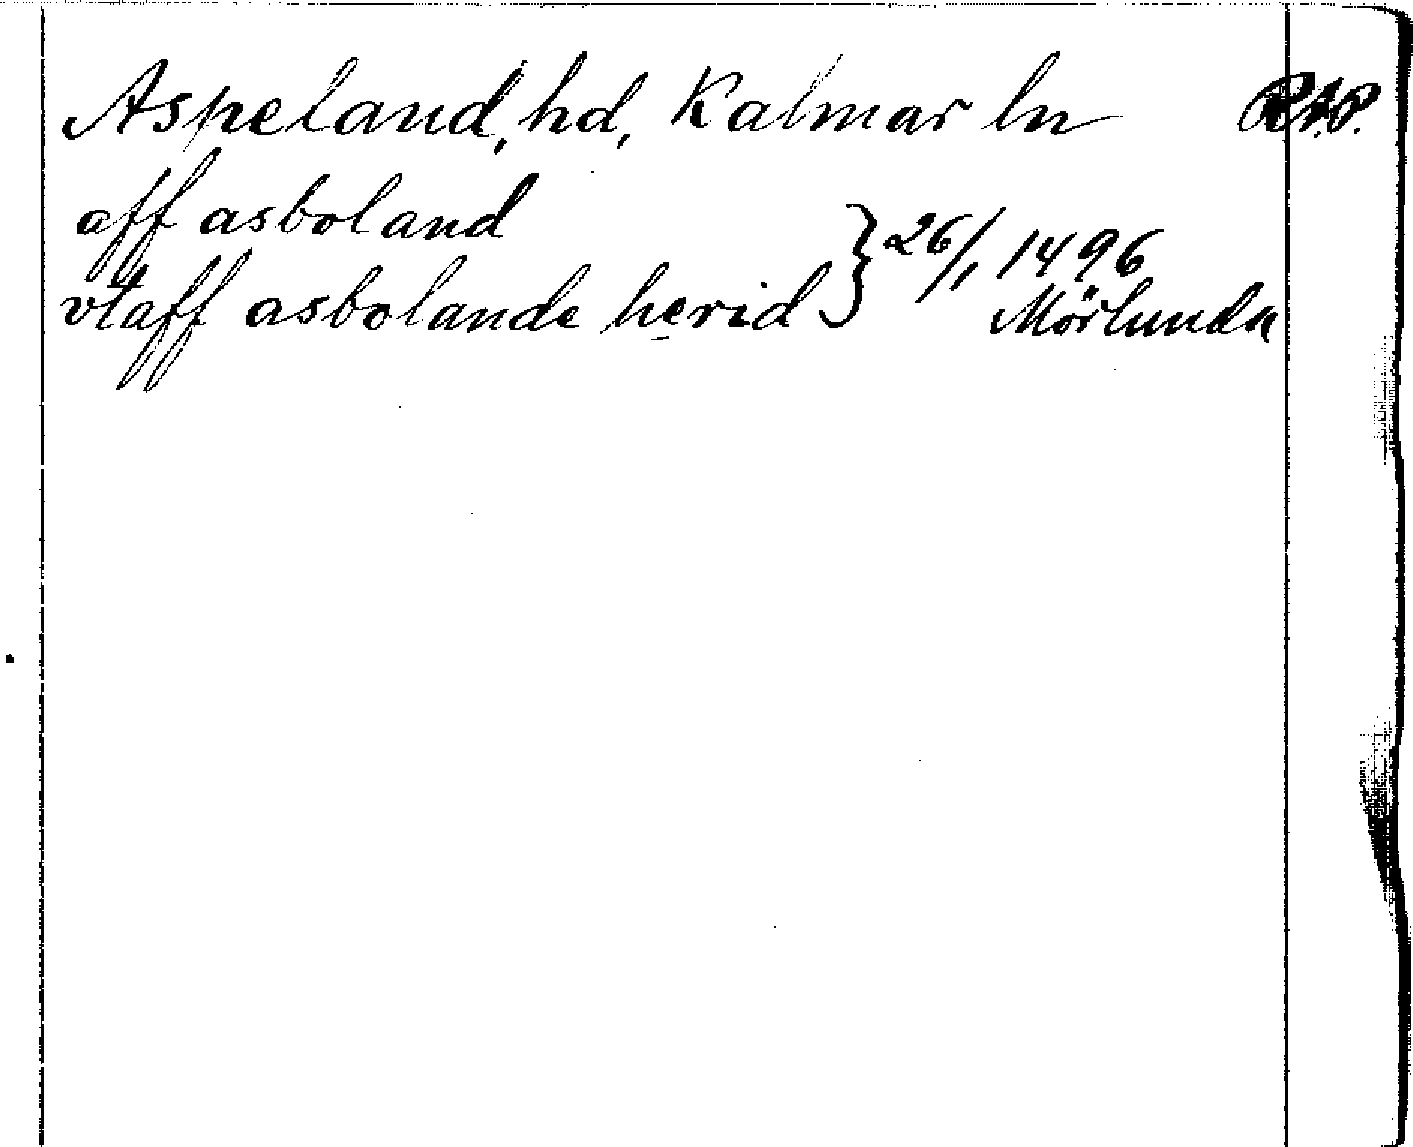 Aspeland, hd, Kalmar ln RAP.
aff asboland
vtaff asbolande herid } 26/1 1496
Mörlunda